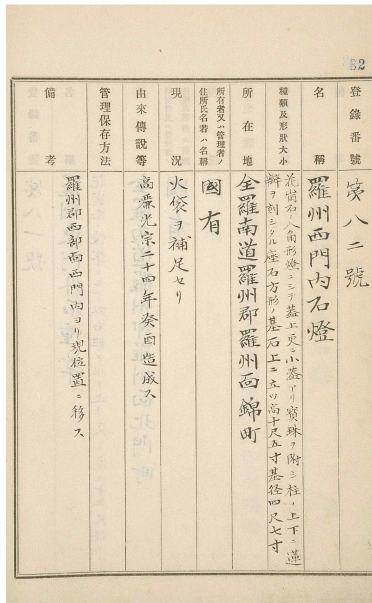 82
登錄番號
第八二號
名稱
羅州西門內石燈
種類及形狀大小
花崗石ノ八角形燈ニシテ蓋上更ニ小蓋アリ寶珠ヲ附シ柱ノ上下ニ蓮
瓣ヲ刻シタル座石方形ノ基石上ニ立ツ高十尺五寸基徑四尺七寸
所在地
全羅南道羅州郡羅州面錦町
所有者又ハ管理者ノ
住所氏名若ハ名稱
國有
現況
火袋ヲ補足セリ
由來傳說等
高麗光宗二十四年癸酉造成ス
管理保存方法
備考
羅州郡西部面西門內ヨリ現位置ニ移ス